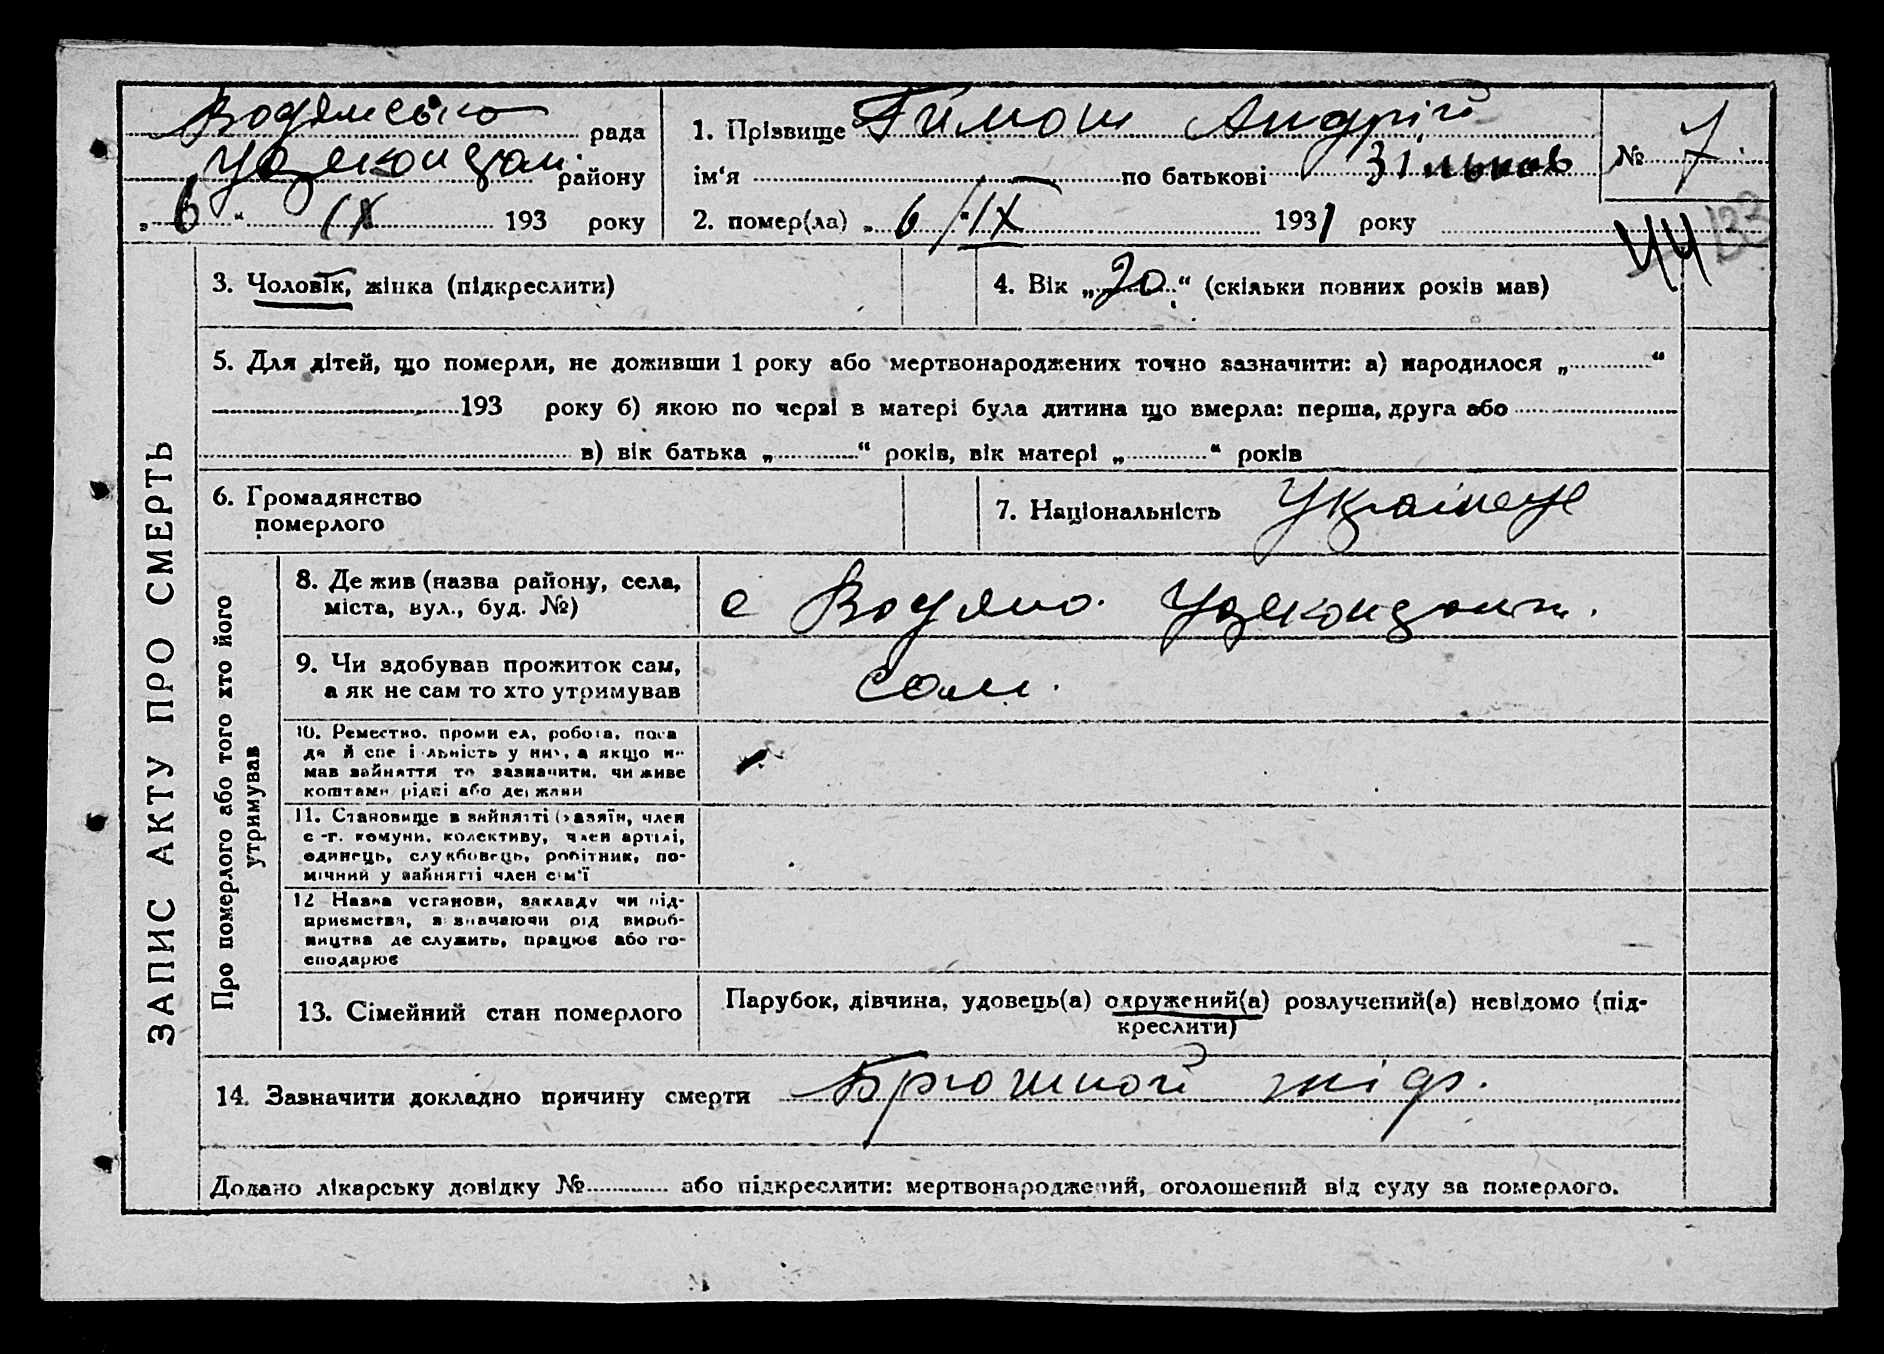 Водянська рада
району
„ 6 “ IX 193 року
1. Прізвище Тимош Андрій
ім‘я по батькові
2. помер(ла) „ 6/IX 1931 року
№ 7
44 133
ЗАПИС АКТУ ПРО СМЕРТЬ
3. Чоловік, жінка (підкреслити)
4. Вік „ 70 “ (скільки повних років мав)
5. Для дітей, що померли, не доживши 1 року або мертвонароджених точно зазначити: а) народилося „ “
193 року б) якою по черзі в матері була дитина що вмерла: перша, друга або
в) вік батька „ “ років, вік матері „ “ років
6. Громадянство
померлого
7. Національність Українец
Про померлого або того хто його
утримував
8. Де жив (назва району, села,
міста, вул., буд. №)
с Водяно
9. Чи здобував прожиток сам,
а як не сам то хто утримував
сам.
10. Ремество, проми ел, робота, поса
да й спе і льність у них, а якщо н
мав зайняття то зазначити, чи живе
коштами рідні або держави
11. Становище в зайнятті (хазяїн, член
с -г. комуни, колективу, член артілі,
одинець, службовець, робітник, по-
мічний у зайнятті член сім‘ї
12 Назва установи, закладу чи під-
приємства, зазначаючи рід вироб-
ництва де служить, працює або го-
сподарює
13. Сімейний стан померлого
Парубок, дівчина, удовець(а) одружений(а) розлучений(а) невідомо (під-
креслити)
14. Зазначити докладно причину смерти Брюшной тіф.
Додано лікарську довідку № або підкреслити: мертвонароджений, оголошений від суду за померлого.